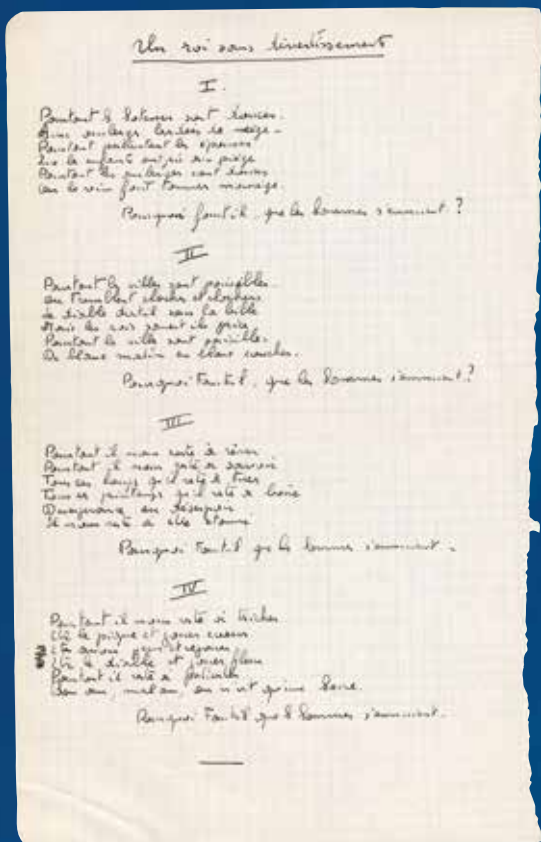 Un roi sans divertissement
I.
Pourtant les hotesses sont douces.
Aux auberges bordées de neige -
Pourtant patientent les épouses
Que les enfants ont pris au piège
Pourtant les auberges sont douces
Où le vin fait tourner manège.
Pourquoi faut il, que les hommes s'ennuient ?
II
Pourtant les villes sont paisibles
où tremblent cloches et clochers
Le diable dort il sous la bible
Mais les rois savent ils prier
Pourtant les villes sont paisibles.
De blanc matin en blanc coucher.
Pourquoi Faut il, que les hommes s'ennuient ?
III
Pourtant il nous reste à rêver
Pourtant il nous reste à savoir
Tous ces loups qu'il reste à tuer
Tous ces printemps qu'il reste à boire
Désespérance ou désespoir
Il nous reste à être étonné
Pourquoi Faut il que les hommes s'ennuient.
IV
Pourtant il nous reste à tricher
être le pique et jouer coeur
être et rejouer
être le diable et jouer fleur
Pourtant il reste à patienter
Bon an, mal an, on ne vit qu'une heure.
Pourquoi Faut il que les hommes s'ennuient.